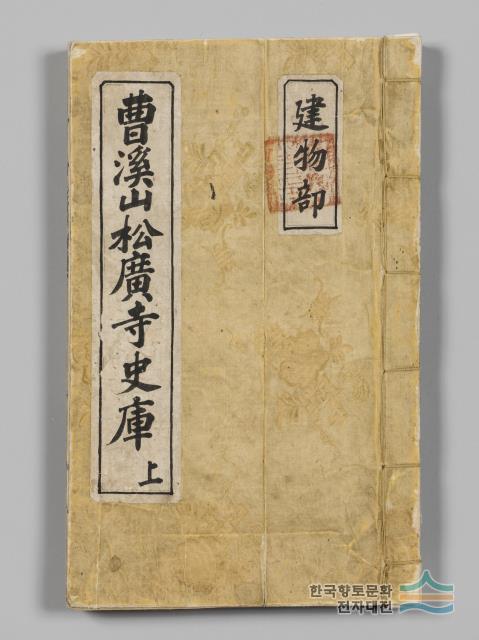 曹溪山松廣寺史庫 上
建物部
한국향토문화
전자대전